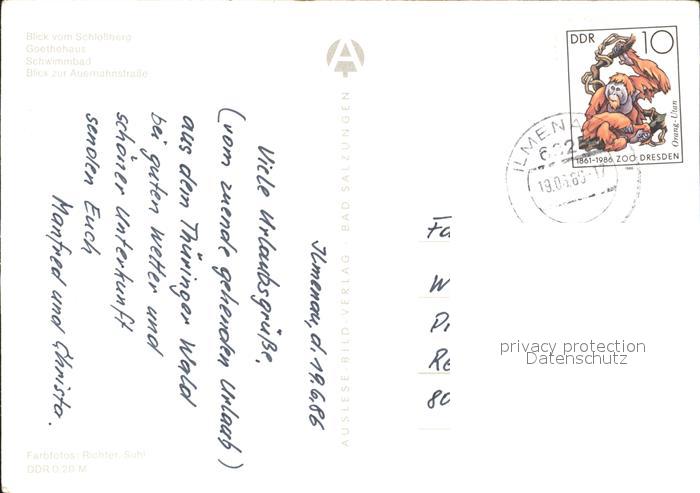 Blick vom Schloßberg
Goethehaus
Schwimmbad
Blick zur Auerhahnstraße
Ilmenau, d. 19.6.86
Viele Urlaubsgrüße,
(vom zuende gehenden Urlaub)
aus dem Thüringer Wald
bei guten Wetter und
schöner Unterkunft
senden Euch
Manfred und Christa.
Farbfotos: Richter, Suhl
DDR 0,20 M
AUSLESE-BILD-VERLAG · BAD SALZUNGEN
DDR 10
Orang-Utan
1861-1986 ZOO DRESDEN
1986
ILMENA
19.06.86-17
Fa
W
Re
80
privacy protection
Datenschutz